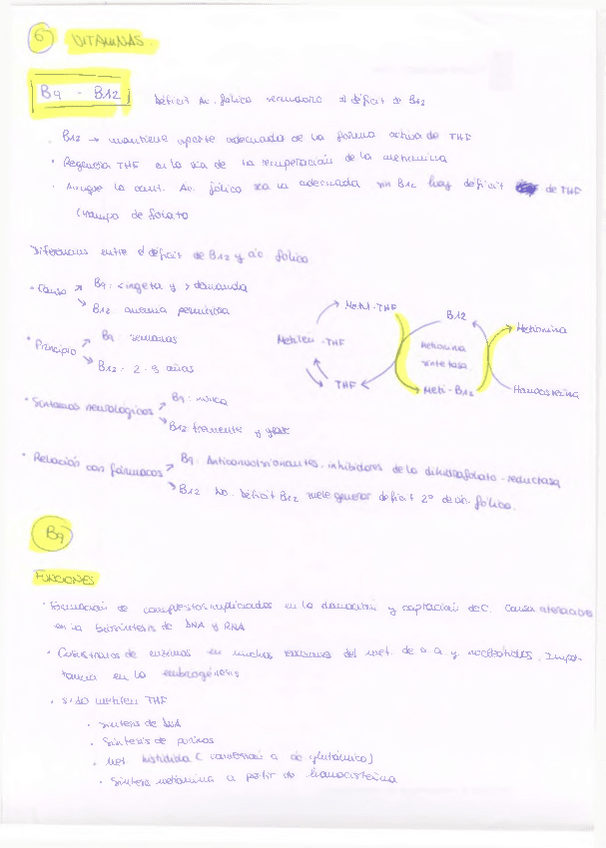 6 VITAMINAS.
B9 - B12 Déficit Ac. fólico secundario al déficit de B12
· B12 → mantiene aporte adecuado de la forma activa de THF
· Regenera THF en la vía de la recuperación de la metionina
· Aunque la cant. Ac. fólico sea la adecuada sin B12 hay déficit de THF
(trampo de folato
Diferencias entre el déficit de B12 y ác fólico
· Causa ↗ B9: < ingesta y > demanda
↘ B12: anemia perniciosa
· Principio ↗ B9: semanas
↘ B12: 2-3 años
· Síntomas neurológicos ↗ B9: nunca
↘ B12 frecuente y grave
· Relación con fármacos ↗ B9: Anticonvulsionantes, inhibidores de la dihidrofolato-reductasa
↘ B12 No. Déficit B12 suele generar déficit 2º de ác. fólico.
Metil-THF
B12
Metionina
Metilen-THF
Metionina
sintetasa
THF
Metil-B12
Homocisteína
B9
FUNCIONES
· Formación de compuestos implicados en la donación y captación de C. Causa alteraciones
en la biosíntesis de DNA y RNA
· Cosustratos de enzimas en muchas reacciones del met. de a a y nucleótidos. Impor-
tancia en la embriogénesis
· 5,10 metilen THF
· Síntesis de DNA
· Síntesis de purinas
· Met. histidina (conversión a ác glutámico)
· Síntesis metionina a partir de homocisteína